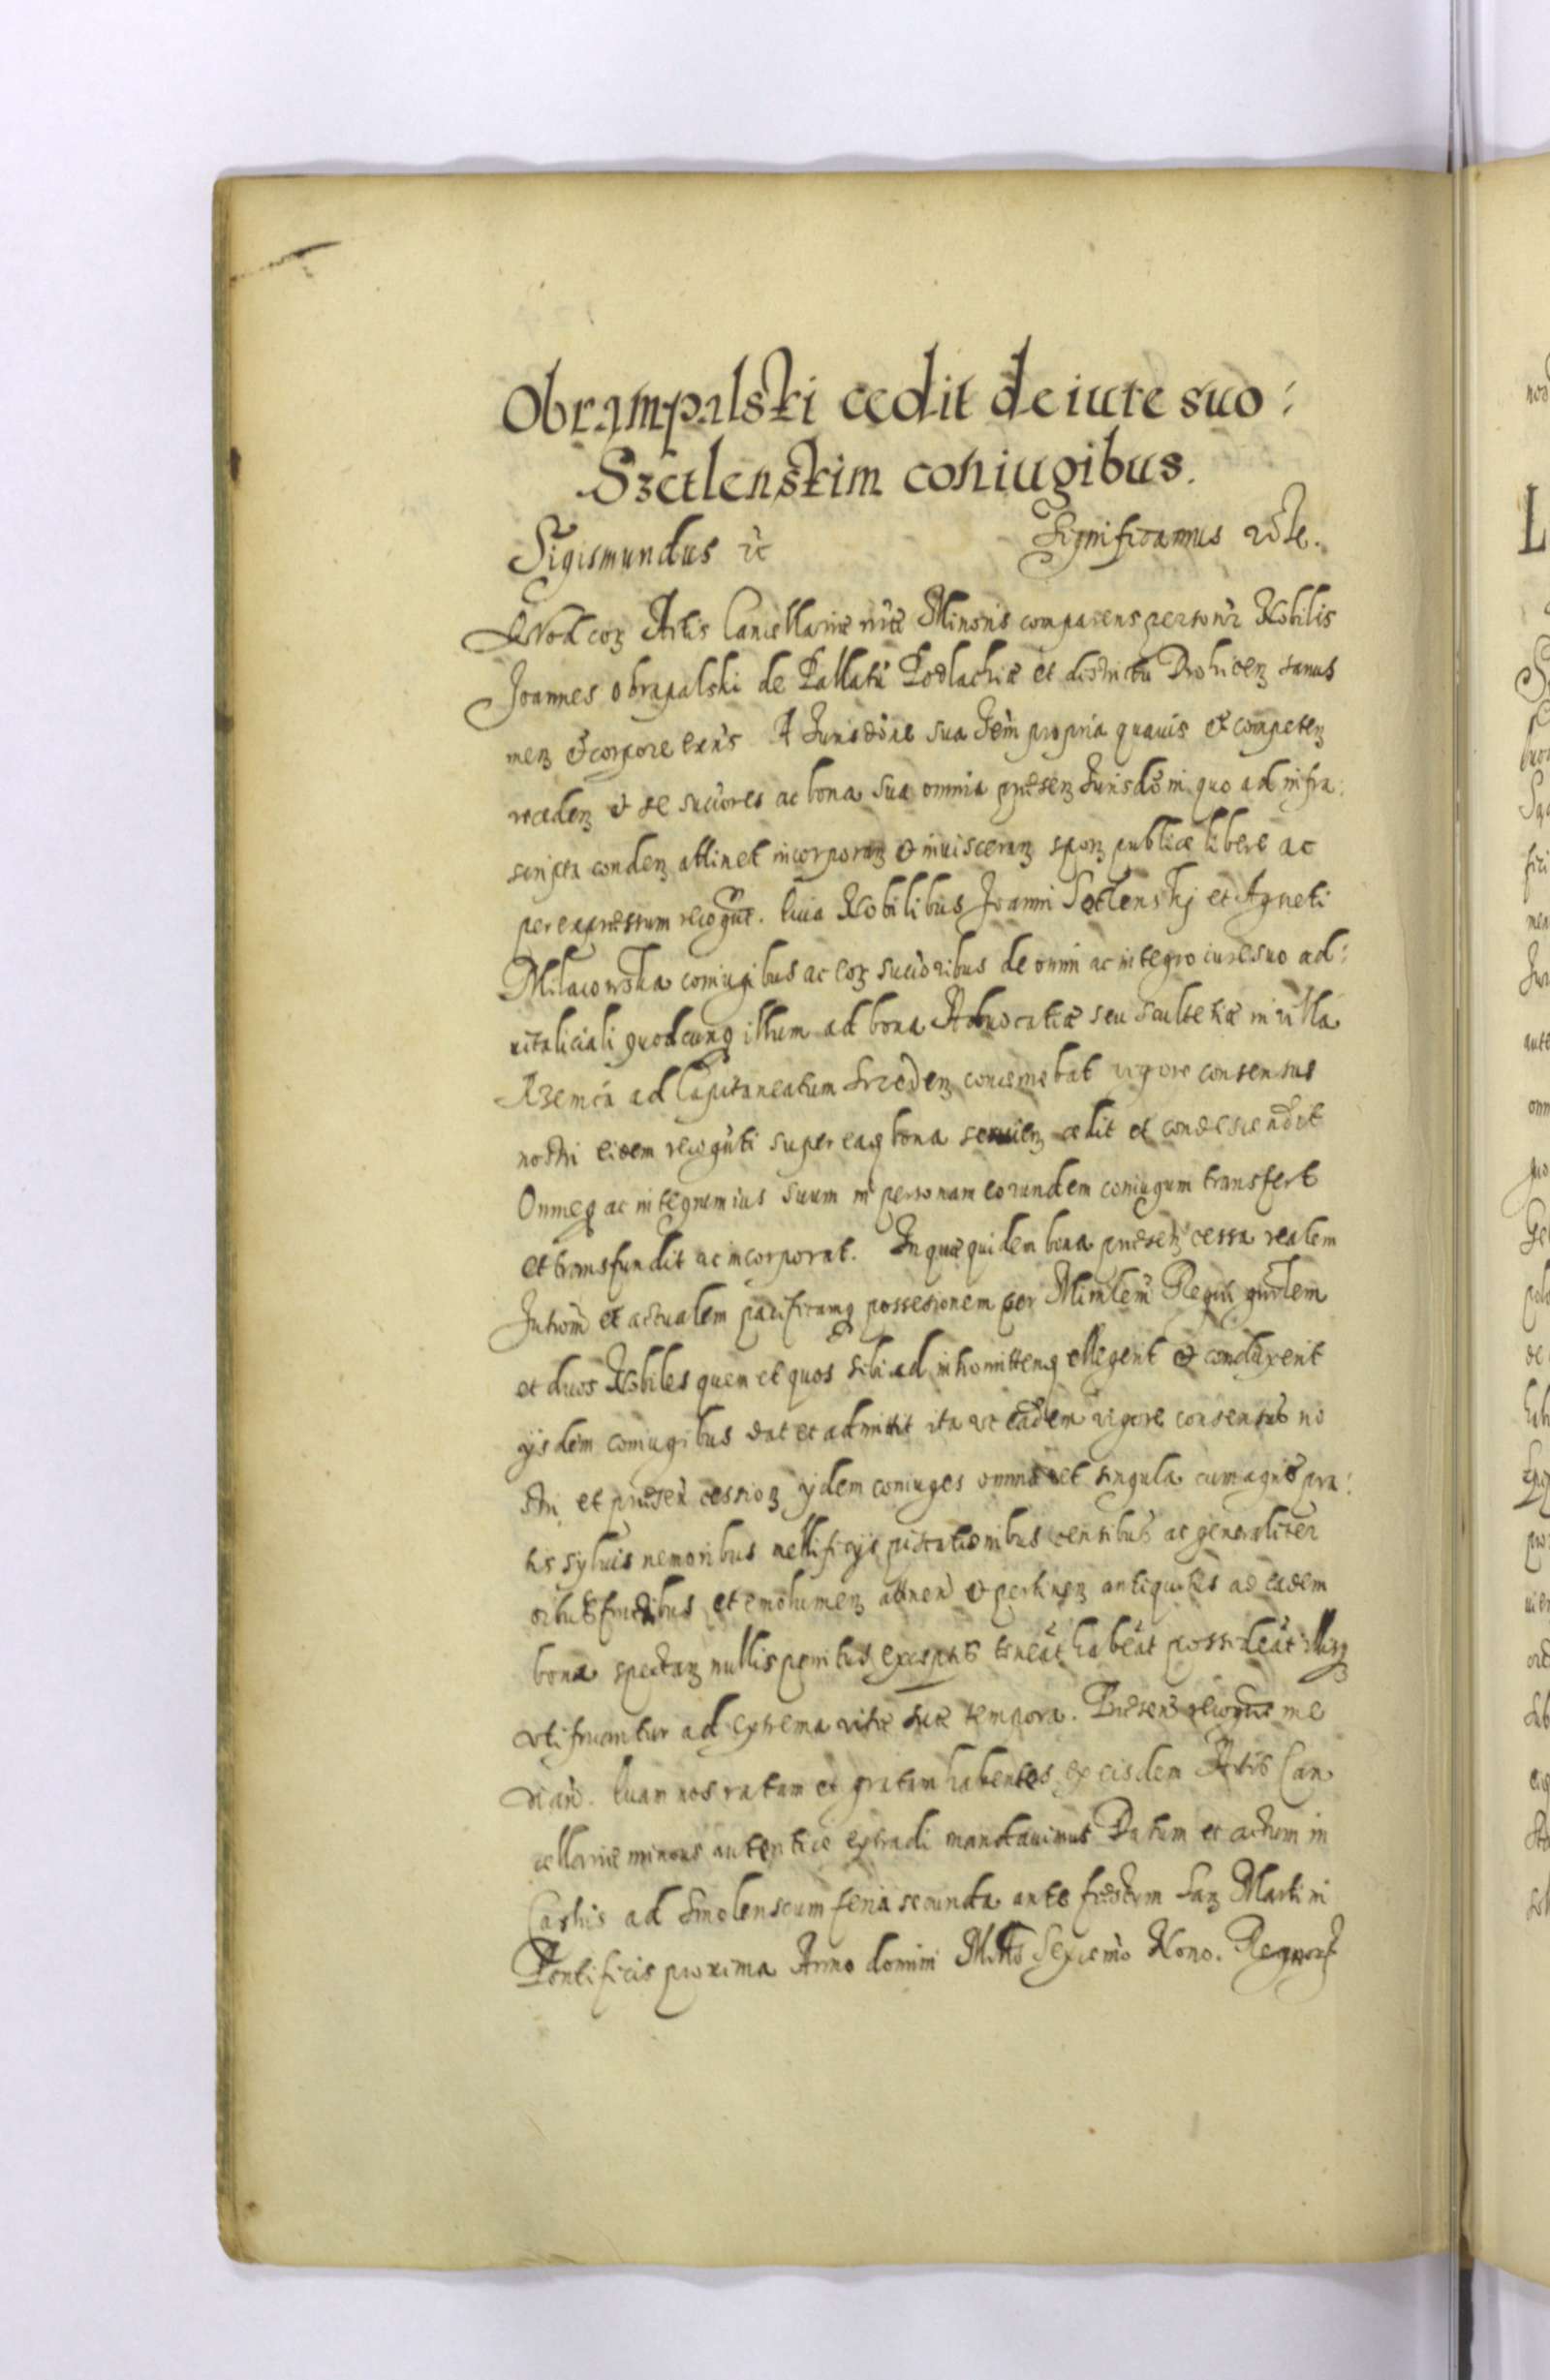 Obrampalski cedit de iure suo:
Szetlenskim coniugibus.
Sigismundus &c Significamus &c
Quod cor Actis Cancellariae nrae Minoris comparens personlr Nobilis
Joannes Obrapalski de Pallatu Podlachiae et districtu Drohicen sanus
men et corpore exns A Jurisdone sua propria quavis et competen
receden et se succores ac bona sua omnia pnti Jurisdoni quo ad infra:
scripta conden attinet incorporan et inviscerans spon publice libere ac
per expressum recogut. Quia Nobilibus Joanni Setlenskj et Agneti
Milacowska coniugibus ac eor succoribus de omni ac integro iure suo ad:
vitaliciali quodcunq illum ad bona Advocatiae seu Scultetiae in villa
ad Capitaneatum concernebat vigore consensus
nostri eidem super eaq bona servien cedit et condescendit
Omneq ac integrum ius suum in personam eorundem coniugum transfert
et transfundit ac incorporat. In quae quidem bona praesen cessa realem
Introm et actualem pacificamq possesionem per Minlem Regni gnralem
et duos Nobiles quem et quos sibi ad intromitten ellegerit et conduxerit
ijsdem coniugibus dat et admittit ita ut eadem vigore consensus no
stri et praesen cession ijdem coniuges omnia et singula cum agris pra:
tis sylvis nemoribus mellificijs piscationibus censibus ac generaliter
oibus fructibus et emolumen attinen et pertinen antiquitus ad eadem
bona spectan nullis penitus exceptis teneat habeat possideat illisq
utifruantur ad extrema vitae suae tempora. Praesen recogne me
dian. Quam nos ratam et gratam habentes ex eisdem Actis Can
cellariae minoris autentice extradi mandavimus Datum et actum in
Castris ad Smolenscum feria secunda ante festum San Martini
Pontificis proxima Anno domini Millo Sexcemo Nono. Regnor